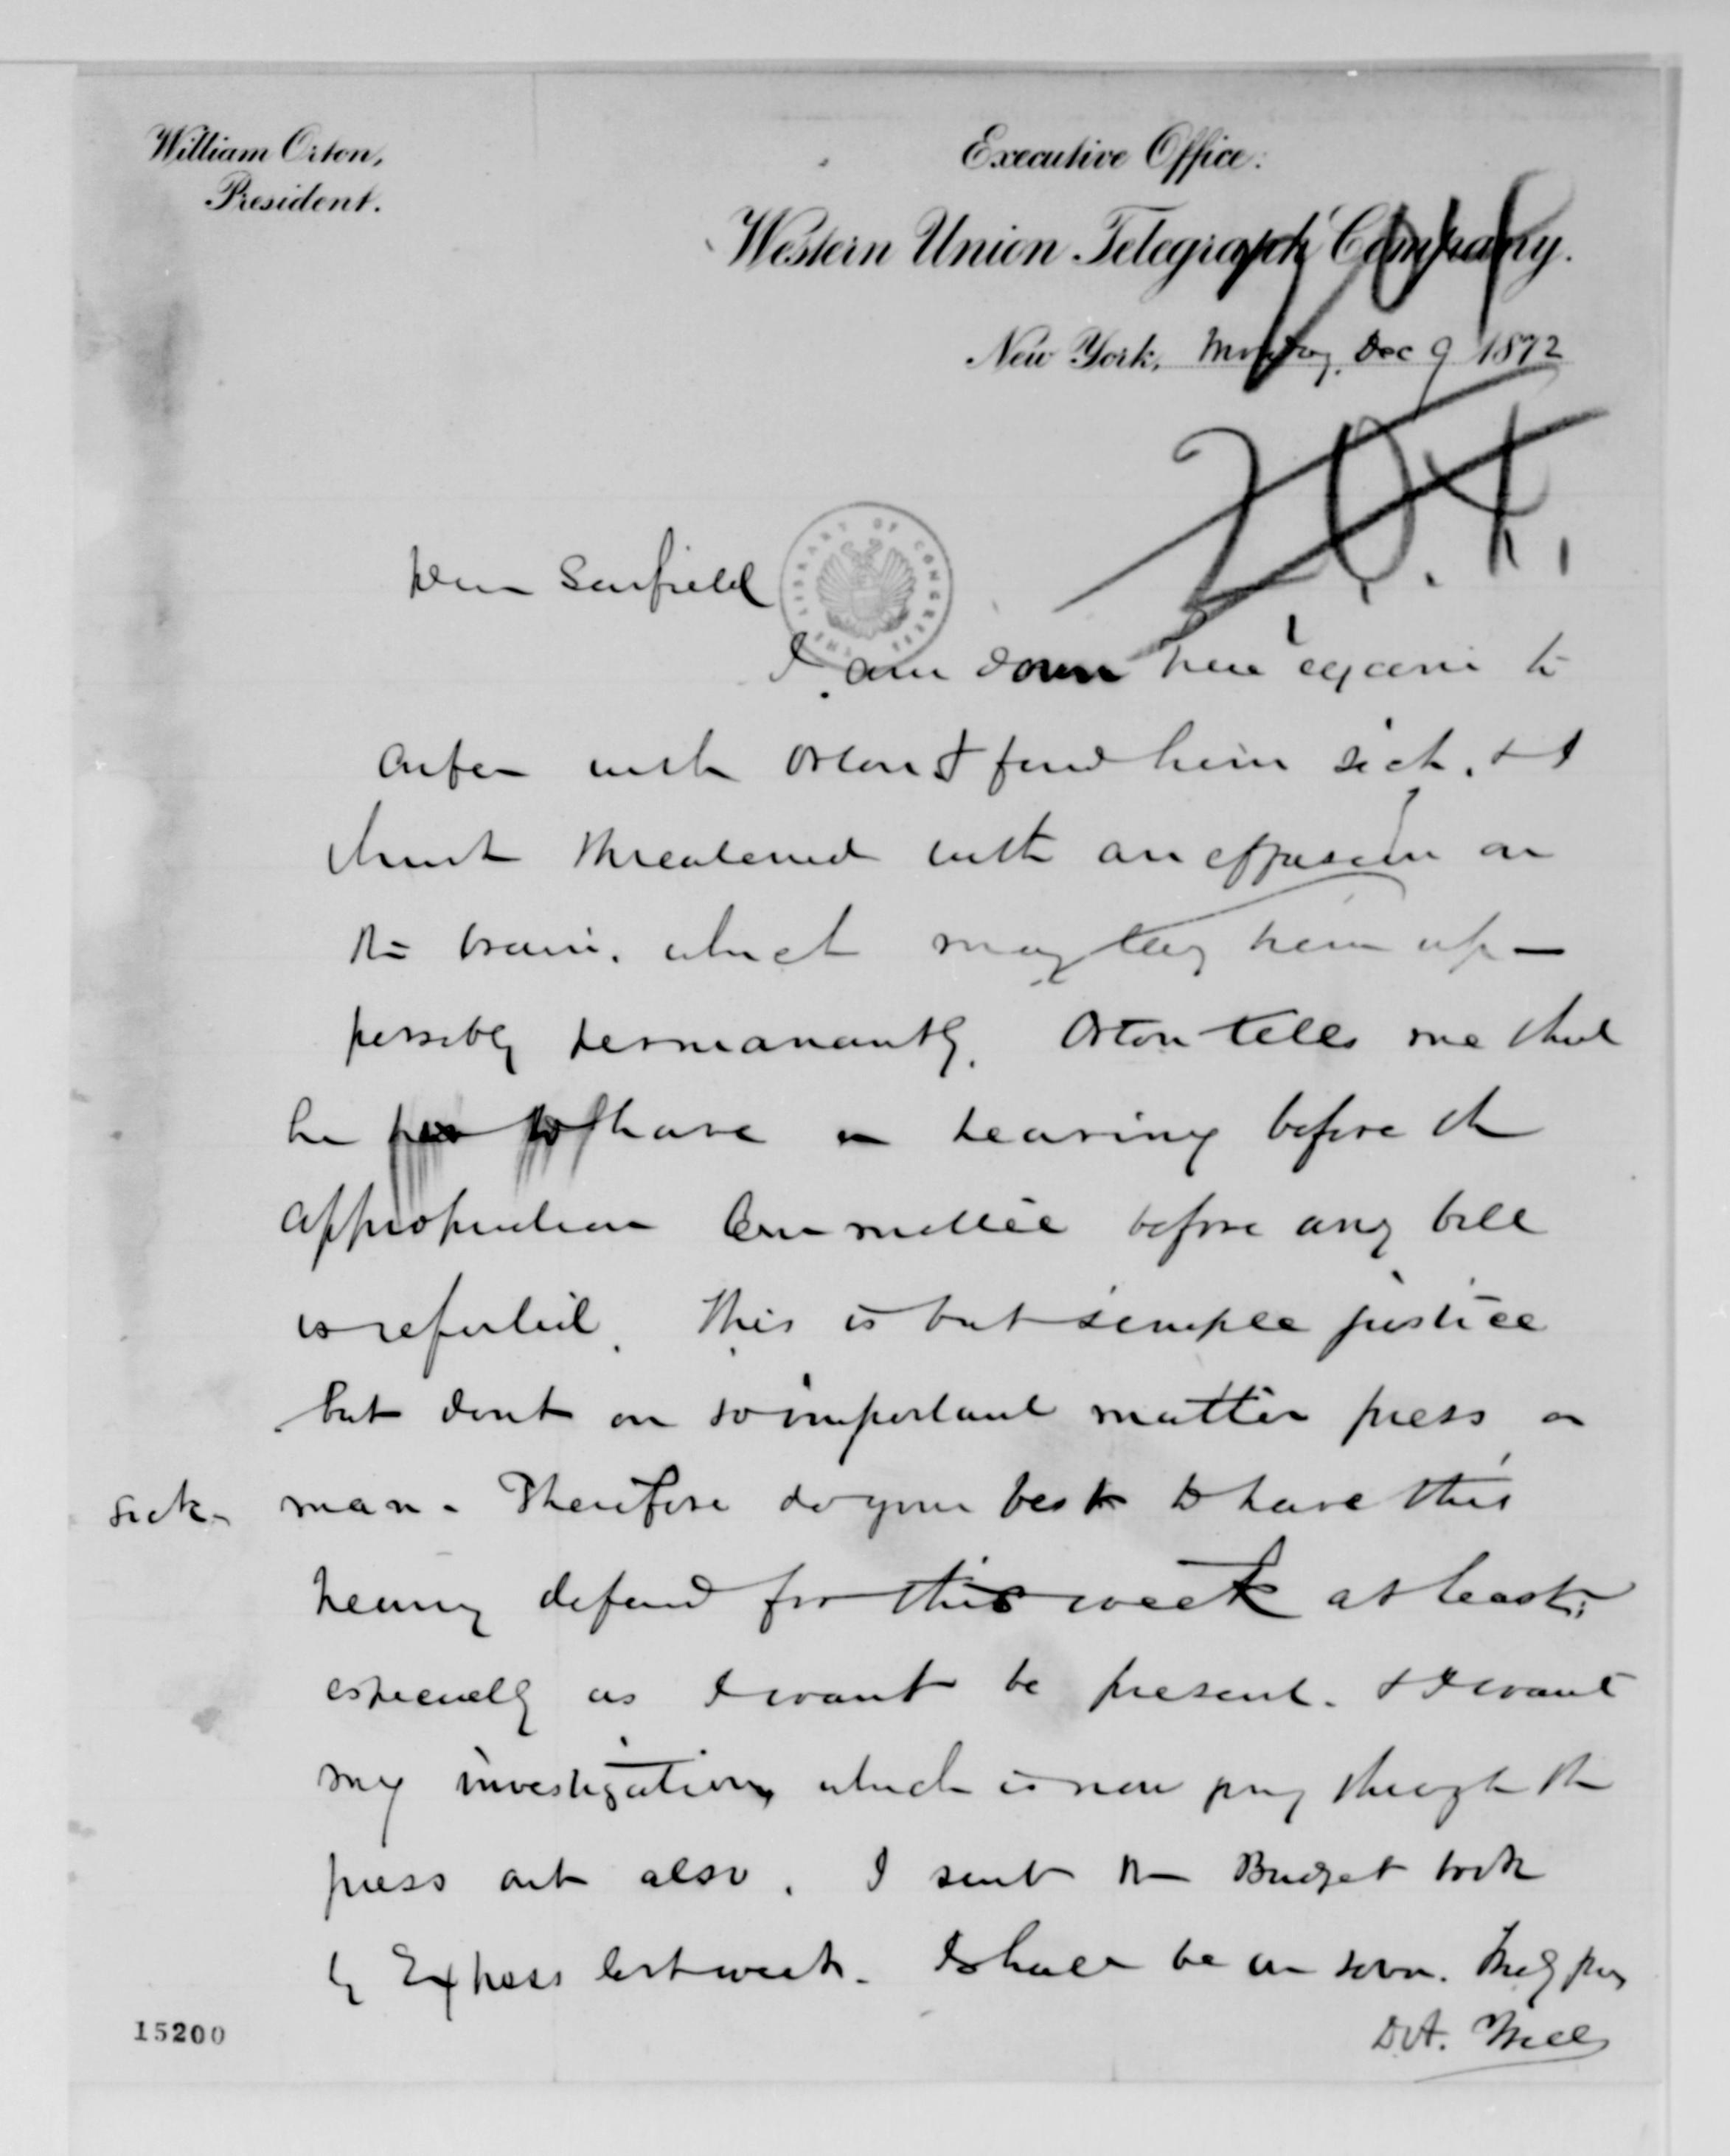 William Orton,
President.
Executive Office:
Western Union Telegraph Company.
New York, Monday, Dec 9 1872
Dear Garfield
THE LIBRARY OF CONGRESS
I am down here again to
confer with Orton & find him sick, & I
think threatened with an effusion on
the brain, which may lay him up —
possibly permanantly. Orton tells me that
he have a hearing before the
appropriation Committee before any bill
is reported. This is but simple justice
but dont on so important matter press a
sick man. Therefore do your best to have this
hearing deferred for this week at least;
especially as I want be present. & I want
my investigation, which is now going through the
press out also. I sent the Budget book
by Express last week. I shall be on soon. Truly yours
D.A. Wells
15200